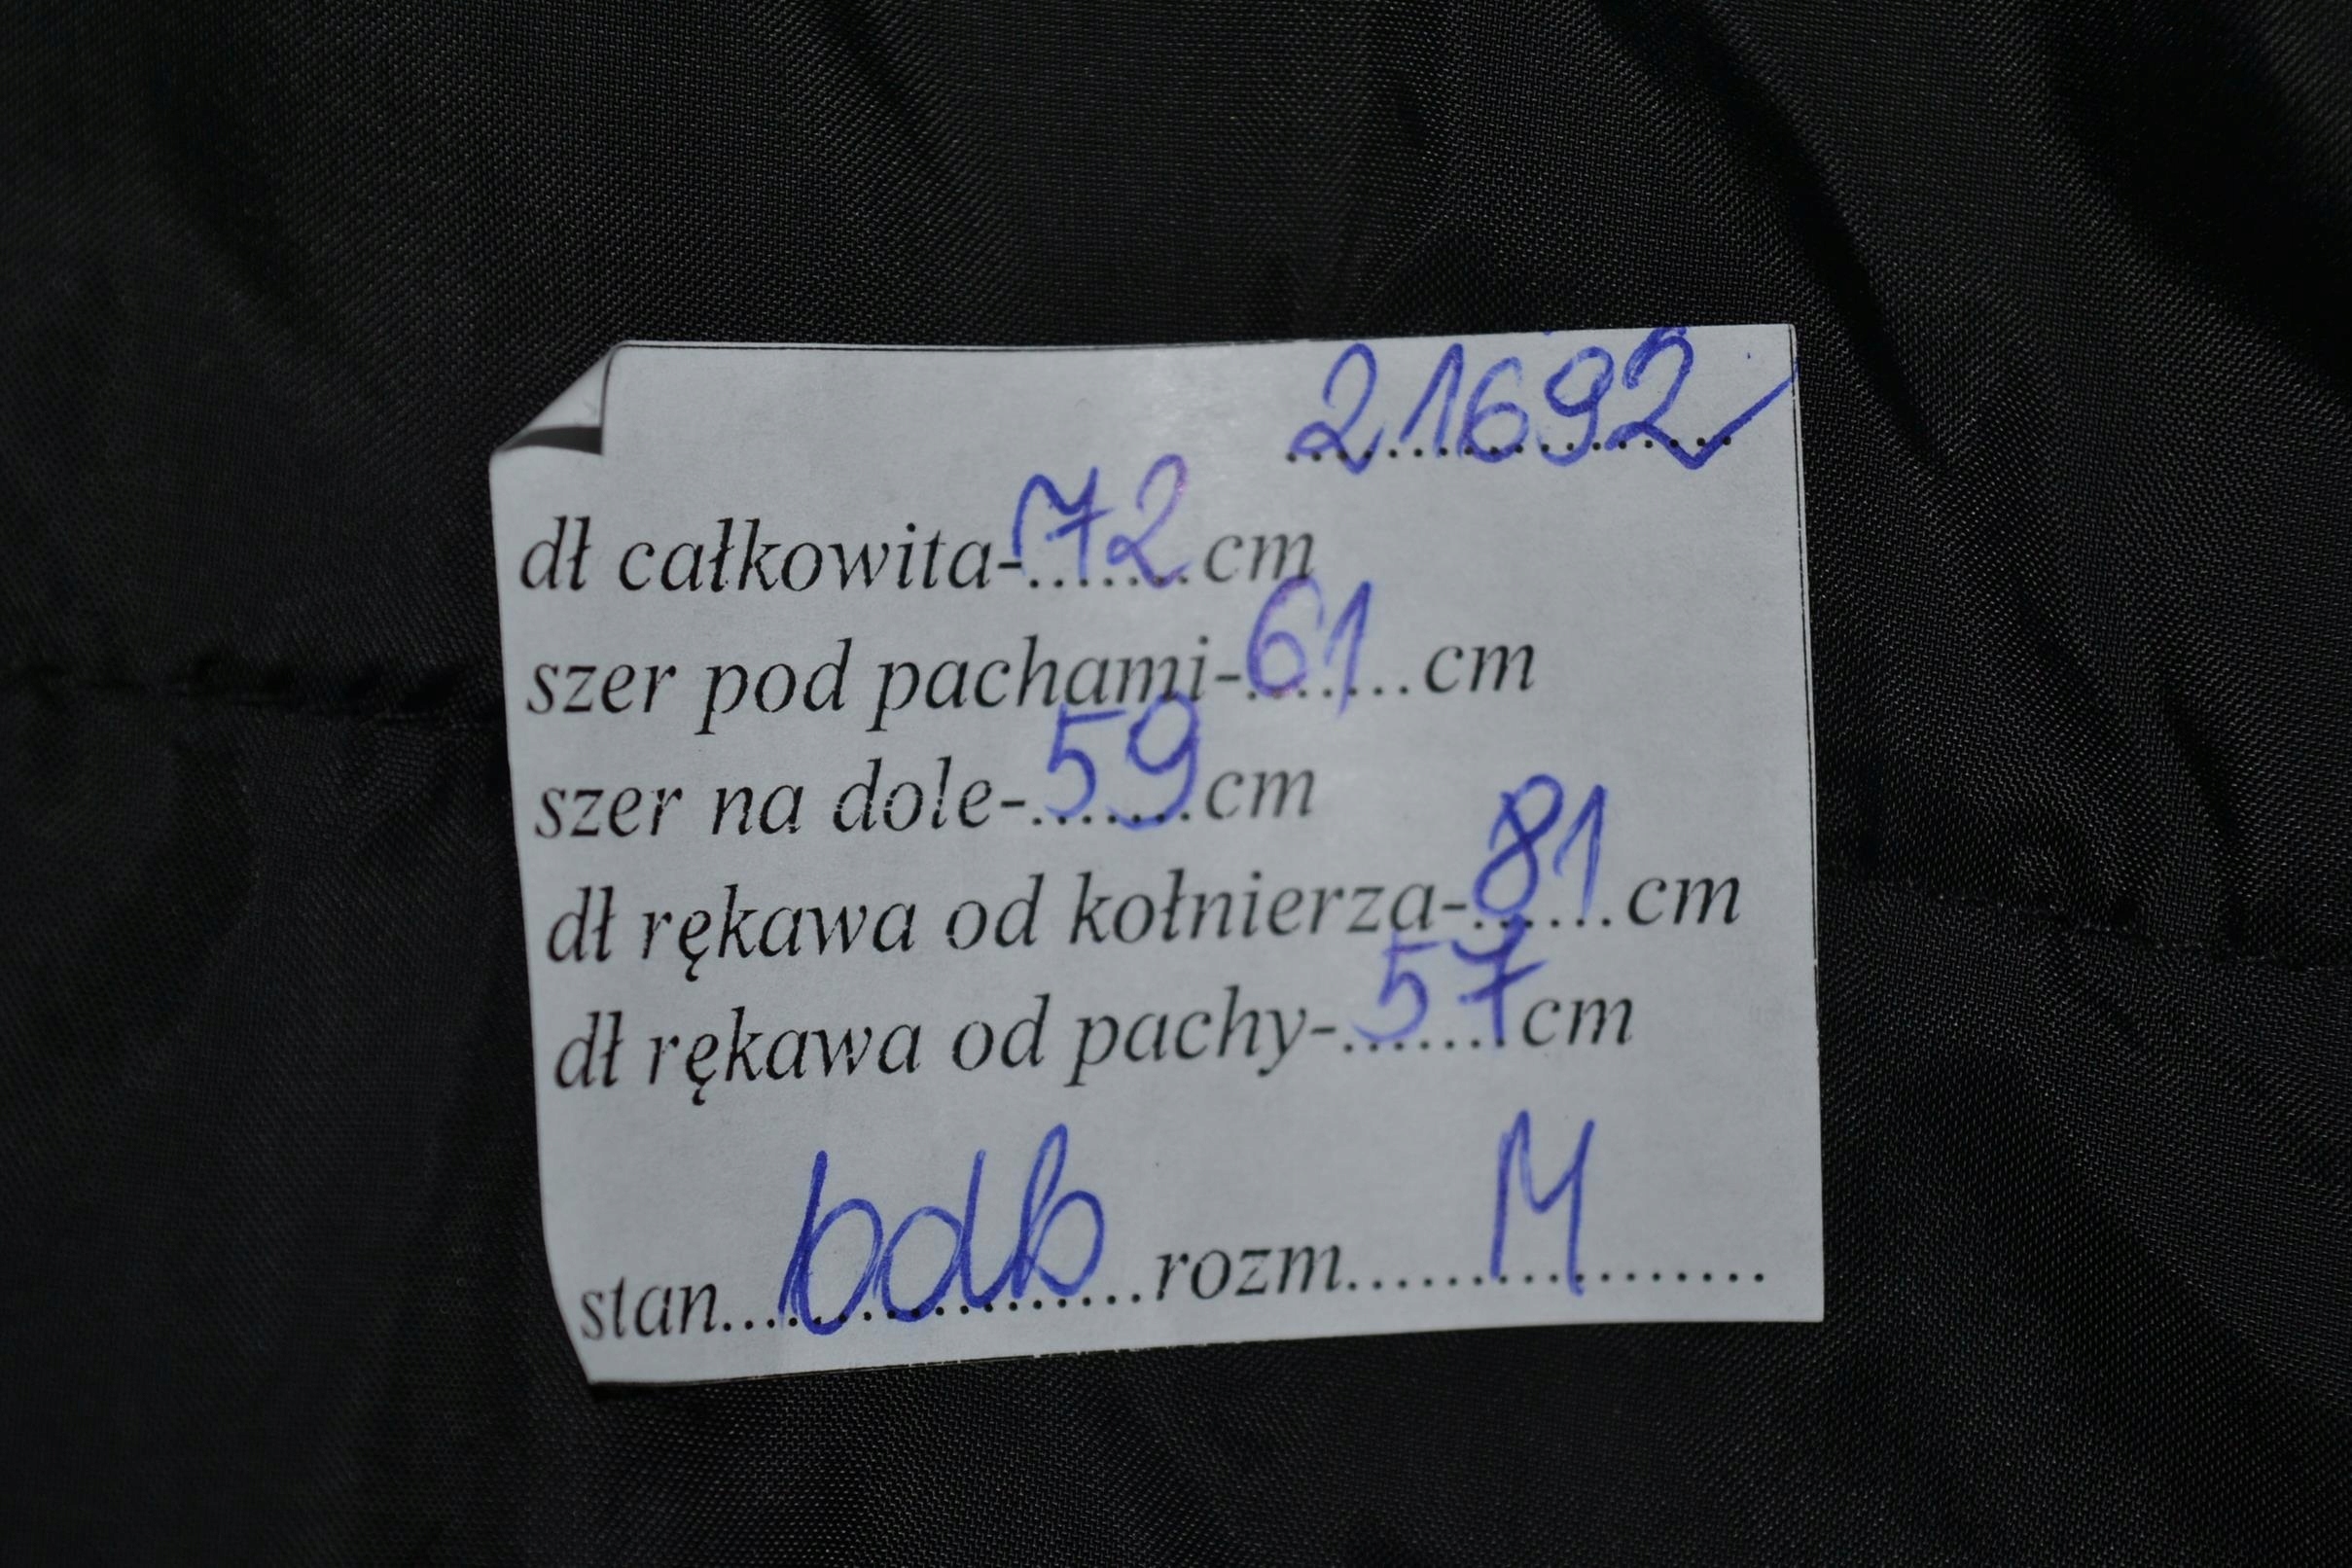 21692
dł całkowita-72cm
szer pod pachami-61...cm
szer na dole-59cm
dł rękawa od kołnierza-81.cm
dł rękawa od pachy-57cm
stan...bdb...rozm......M..........